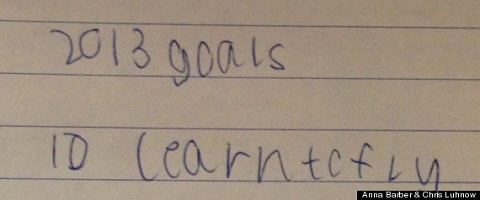 2013 goals
10 learn to fly
Anna Barber & Chris Luhnow